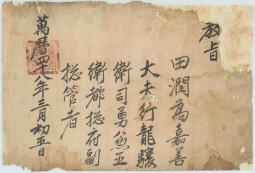 教旨
田潤爲嘉善
大夫行龍驤
衛司勇兼五
衛都摠府副
摠管者
萬曆四十八年三月初五日